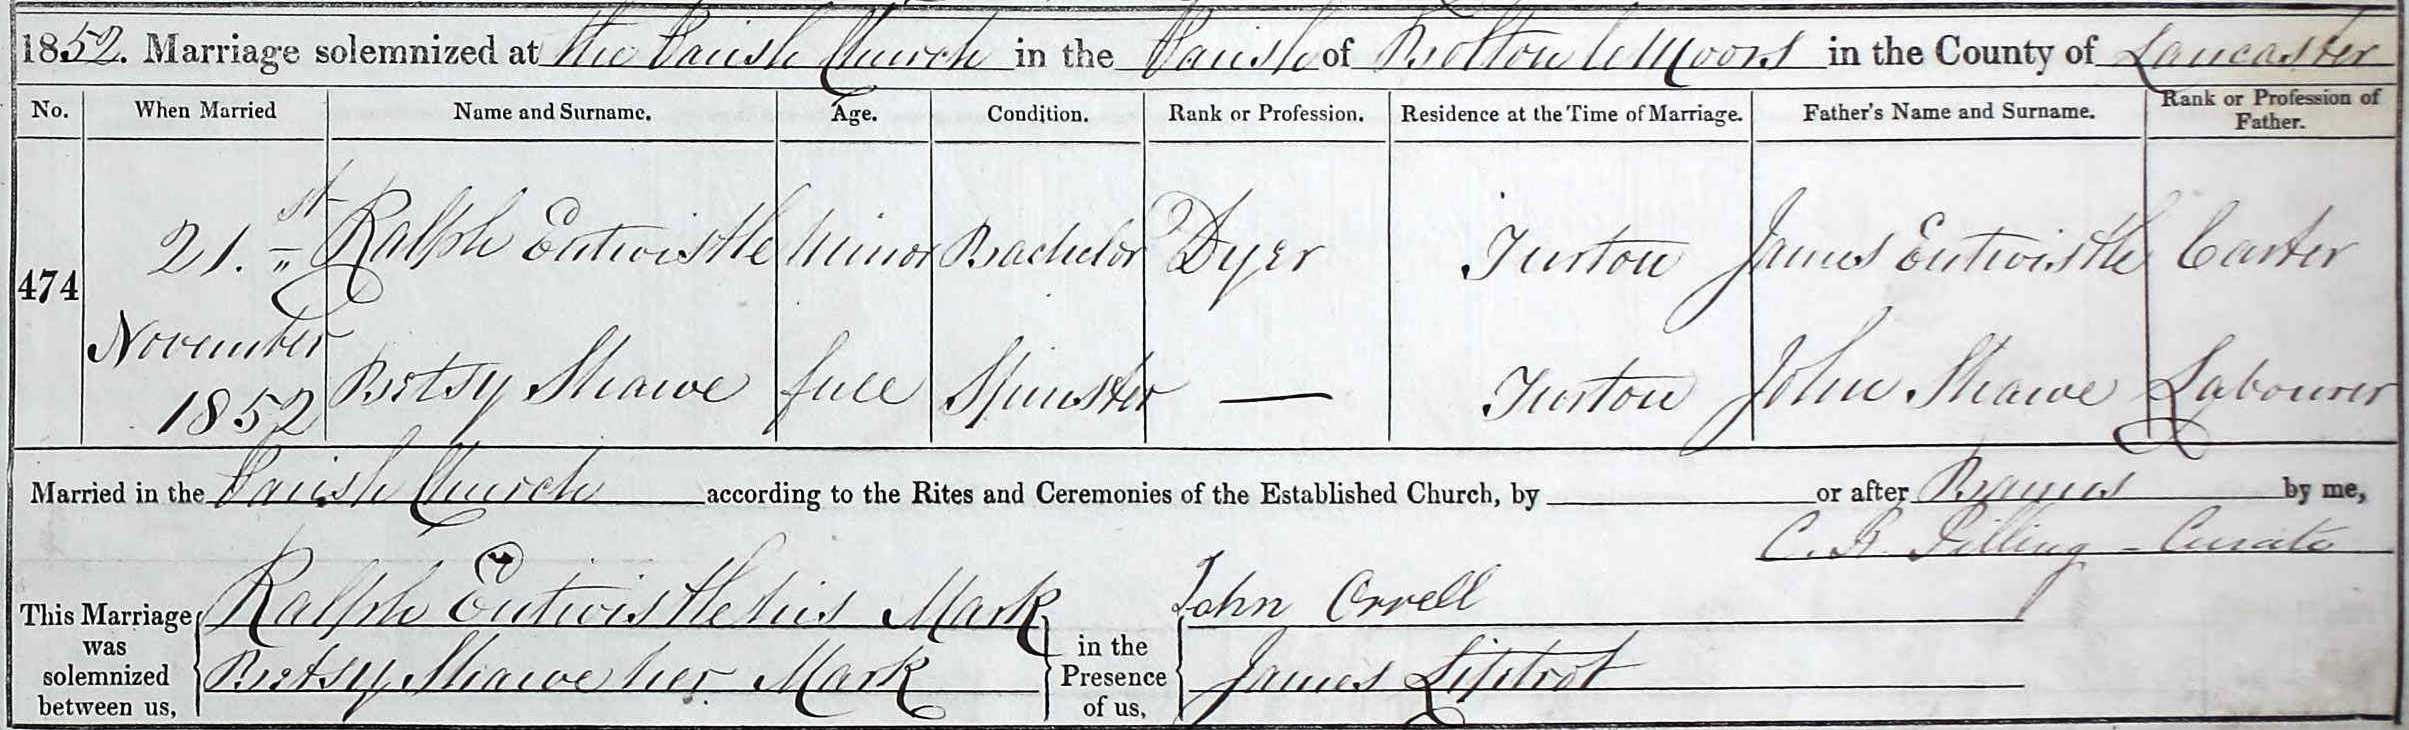 1852. Marriage solemnized at the Parish Church in the Parish of Bolton le Moors in the County of Lancaster
No. When Married Name and Surname. Age. Condition. Rank or Profession. Residence at the Time of Marriage. Father's Name and Surname. Rank or Profession of Father.
474 21.st Ralph Entwistle Minor Bachelor Dyer Turton James Entwistle Carter
November
1852 Betsy Shawe full Spinster — Turton John Shawe Labourer
Married in the Parish Church according to the Rites and Ceremonies of the Established Church, by or after Banns by me,
C. R. Pilling - Curate
This Marriage was solemnized between us, Ralph Entwistle his Mark in the Presence of us, John Orrell
Betsy Shawe her Mark James Liptrot